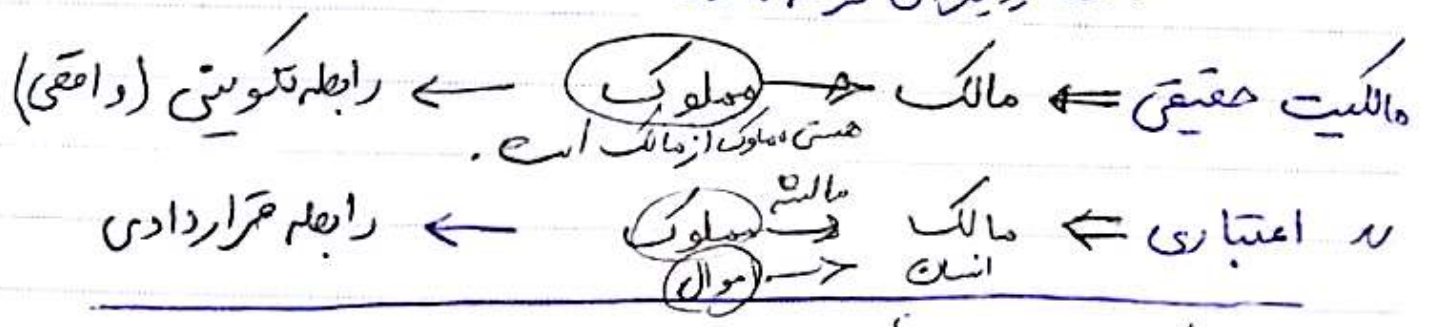 مالکیت حقیقی ⇐ مالک ← مملوک ← رابطه تکوینی (واقعی)
هستی مملوک از مالک است.
〃 اعتباری ⇐ مالک ← مملوک ← رابطه قراردادی
انسان ← اموال